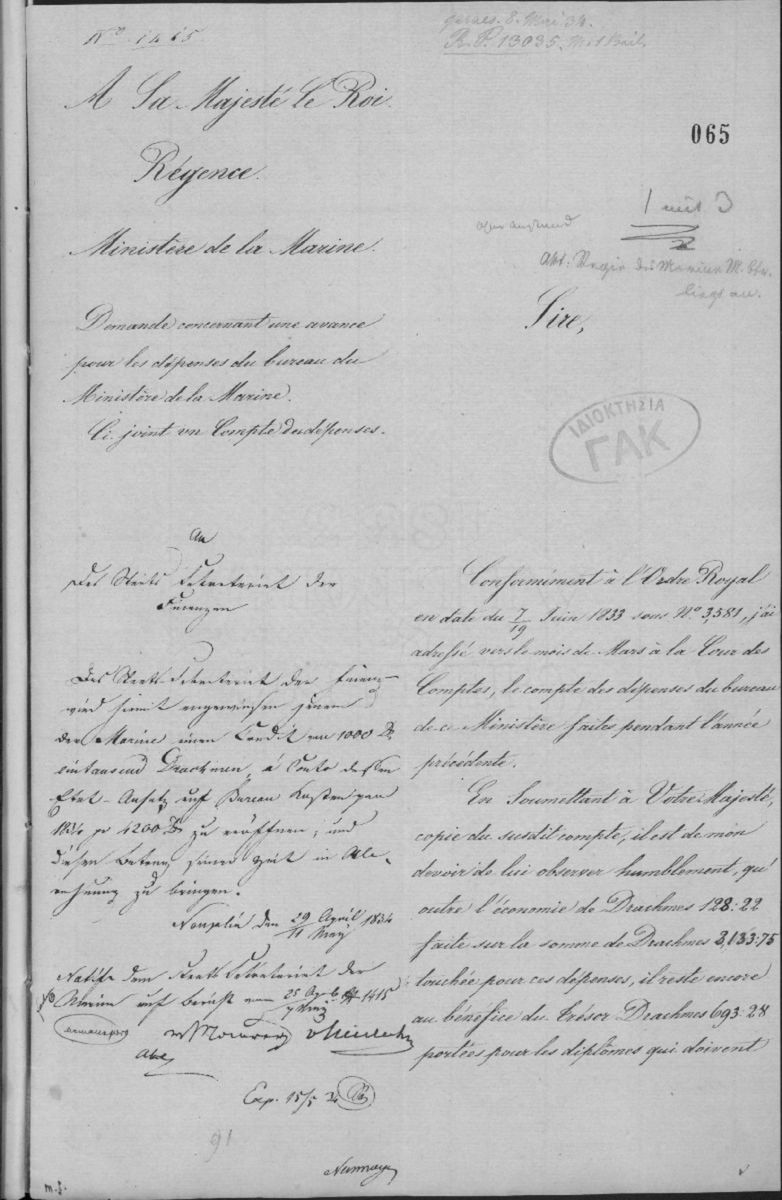 No 1415
A Sa Majesté le Roi.
Régence.
Ministère de la Marine.
Demande concernant une avance
pour les dépenses du bureau du
Ministère de la Marine.
Ci-joint un Compte des dépenses.
An
Das Staats Sekretariat der
Finanzen
Das Staats Sekretariat der Finanzen
wird hiemit angewiesen jenem
der Marine einen Credit von 1000 Dr.
eintausend Drachmen, à Conto dessen
Etat-Ansatz auf Bureau Kosten pro
1834 pr 4200 Dr zu eröffnen, und
diesen Betrag seiner Zeit in
zu bringen.
Nauplia den 29 April / 11 May 1834
dem Staats Sekretariat der
Marine auf Bericht vom 25 Ap / 7 May № 1415
Armansperg v Maurer v Heideck
Abel
Exp. 15/5 34
91
m.f.
praes. 8. Mai 34.
R.P. 13035.
065
1 mit 3
Akt.
liegt an.
Sire,
ΙΔΙΟΚΤΗΣΙΑ
ΓΑΚ
Conformément à l'Ordre Royal
en date du 7/19 Juin 1833 sous No. 3,581, j'ai
adressé vers le mois de Mars à la Cour des
Comptes, le compte des dépenses du bureau
de ce Ministère faites pendant l'année
précédente.
En Soumettant à Votre Majesté,
copie du susdit compte, il est de mon
devoir de lui observer humblement, qu'
outre l'économie de Drachmes 128:22
faite sur la somme de Drachmes 3,133:75
touchée pour ces dépenses, il reste encore
au bénéfice du trésor Drachmes 693:28
portées pour les diplômes qui doivent